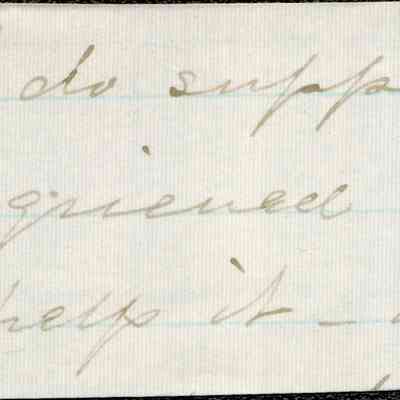 do supp
grieved
help it –